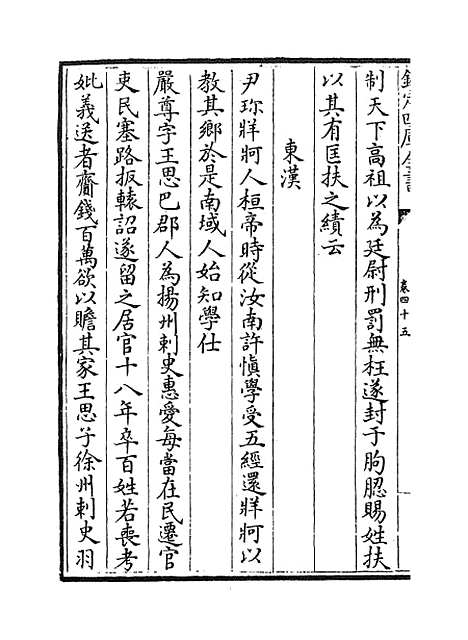 欽定四庫全書
卷四十五
制天下高祖以為廷尉刑罰無枉遂封于朐䏰賜姓扶
以其有匡扶之績云
東漢
尹珍牂牁人桓帝時從汝南許慎學受五經還牂牁以
教其鄉於是南域人始知學仕
嚴尊字王思巴郡人為揚州刺史惠愛每當在民遷官
吏民塞路扳轅詔遂留之居官十八年卒百姓若喪考
妣義送者齎錢百萬欲以贍其家王思子徐州刺史羽